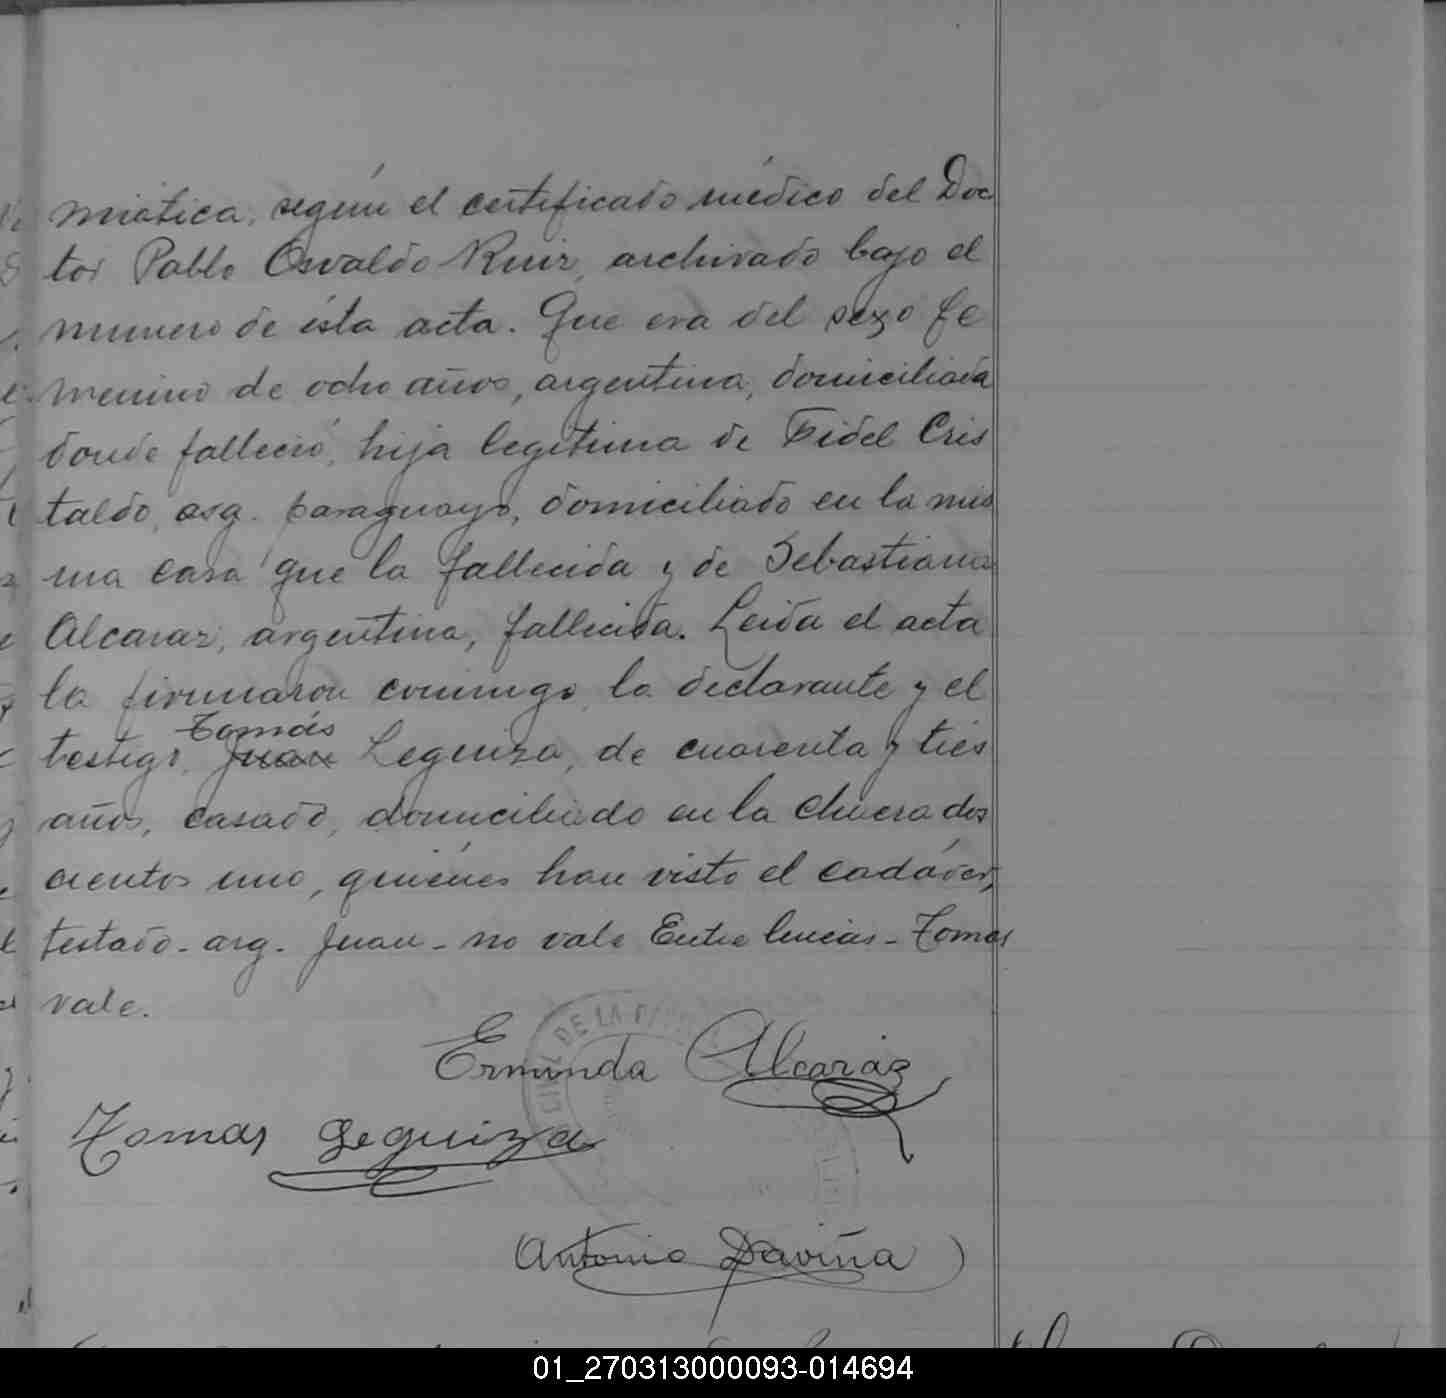 miótica, según el certificado médico del Doc
tor Pablo Osvaldo Ruiz, archivado bajo el
numero de ésta acta. Que era del sexo fe
menino de ocho años, argentina, domiciliada
donde falleció, hija legítima de Fidel Cris
taldo, arg. paraguayo, domiciliado en la mis
ma casa que la fallecida y de Sebastiana
Alcaraz, argentina, fallecida. Leida el acta
la firmaron conmigo, la declarante y el
Tomás
testigo, Juan Leguiza, de cuarenta y tres
años, casado, domiciliado en la chacra dos
cientos uno, quiénes han visto el cadáver,
testado - arg. Juan - no vale Entre lineas - Tomas
vale.
CIVIL DE LA
Ermunda Alcaráz
Tomas Leguiza
Antonio Daviña
01_270313000093-014694